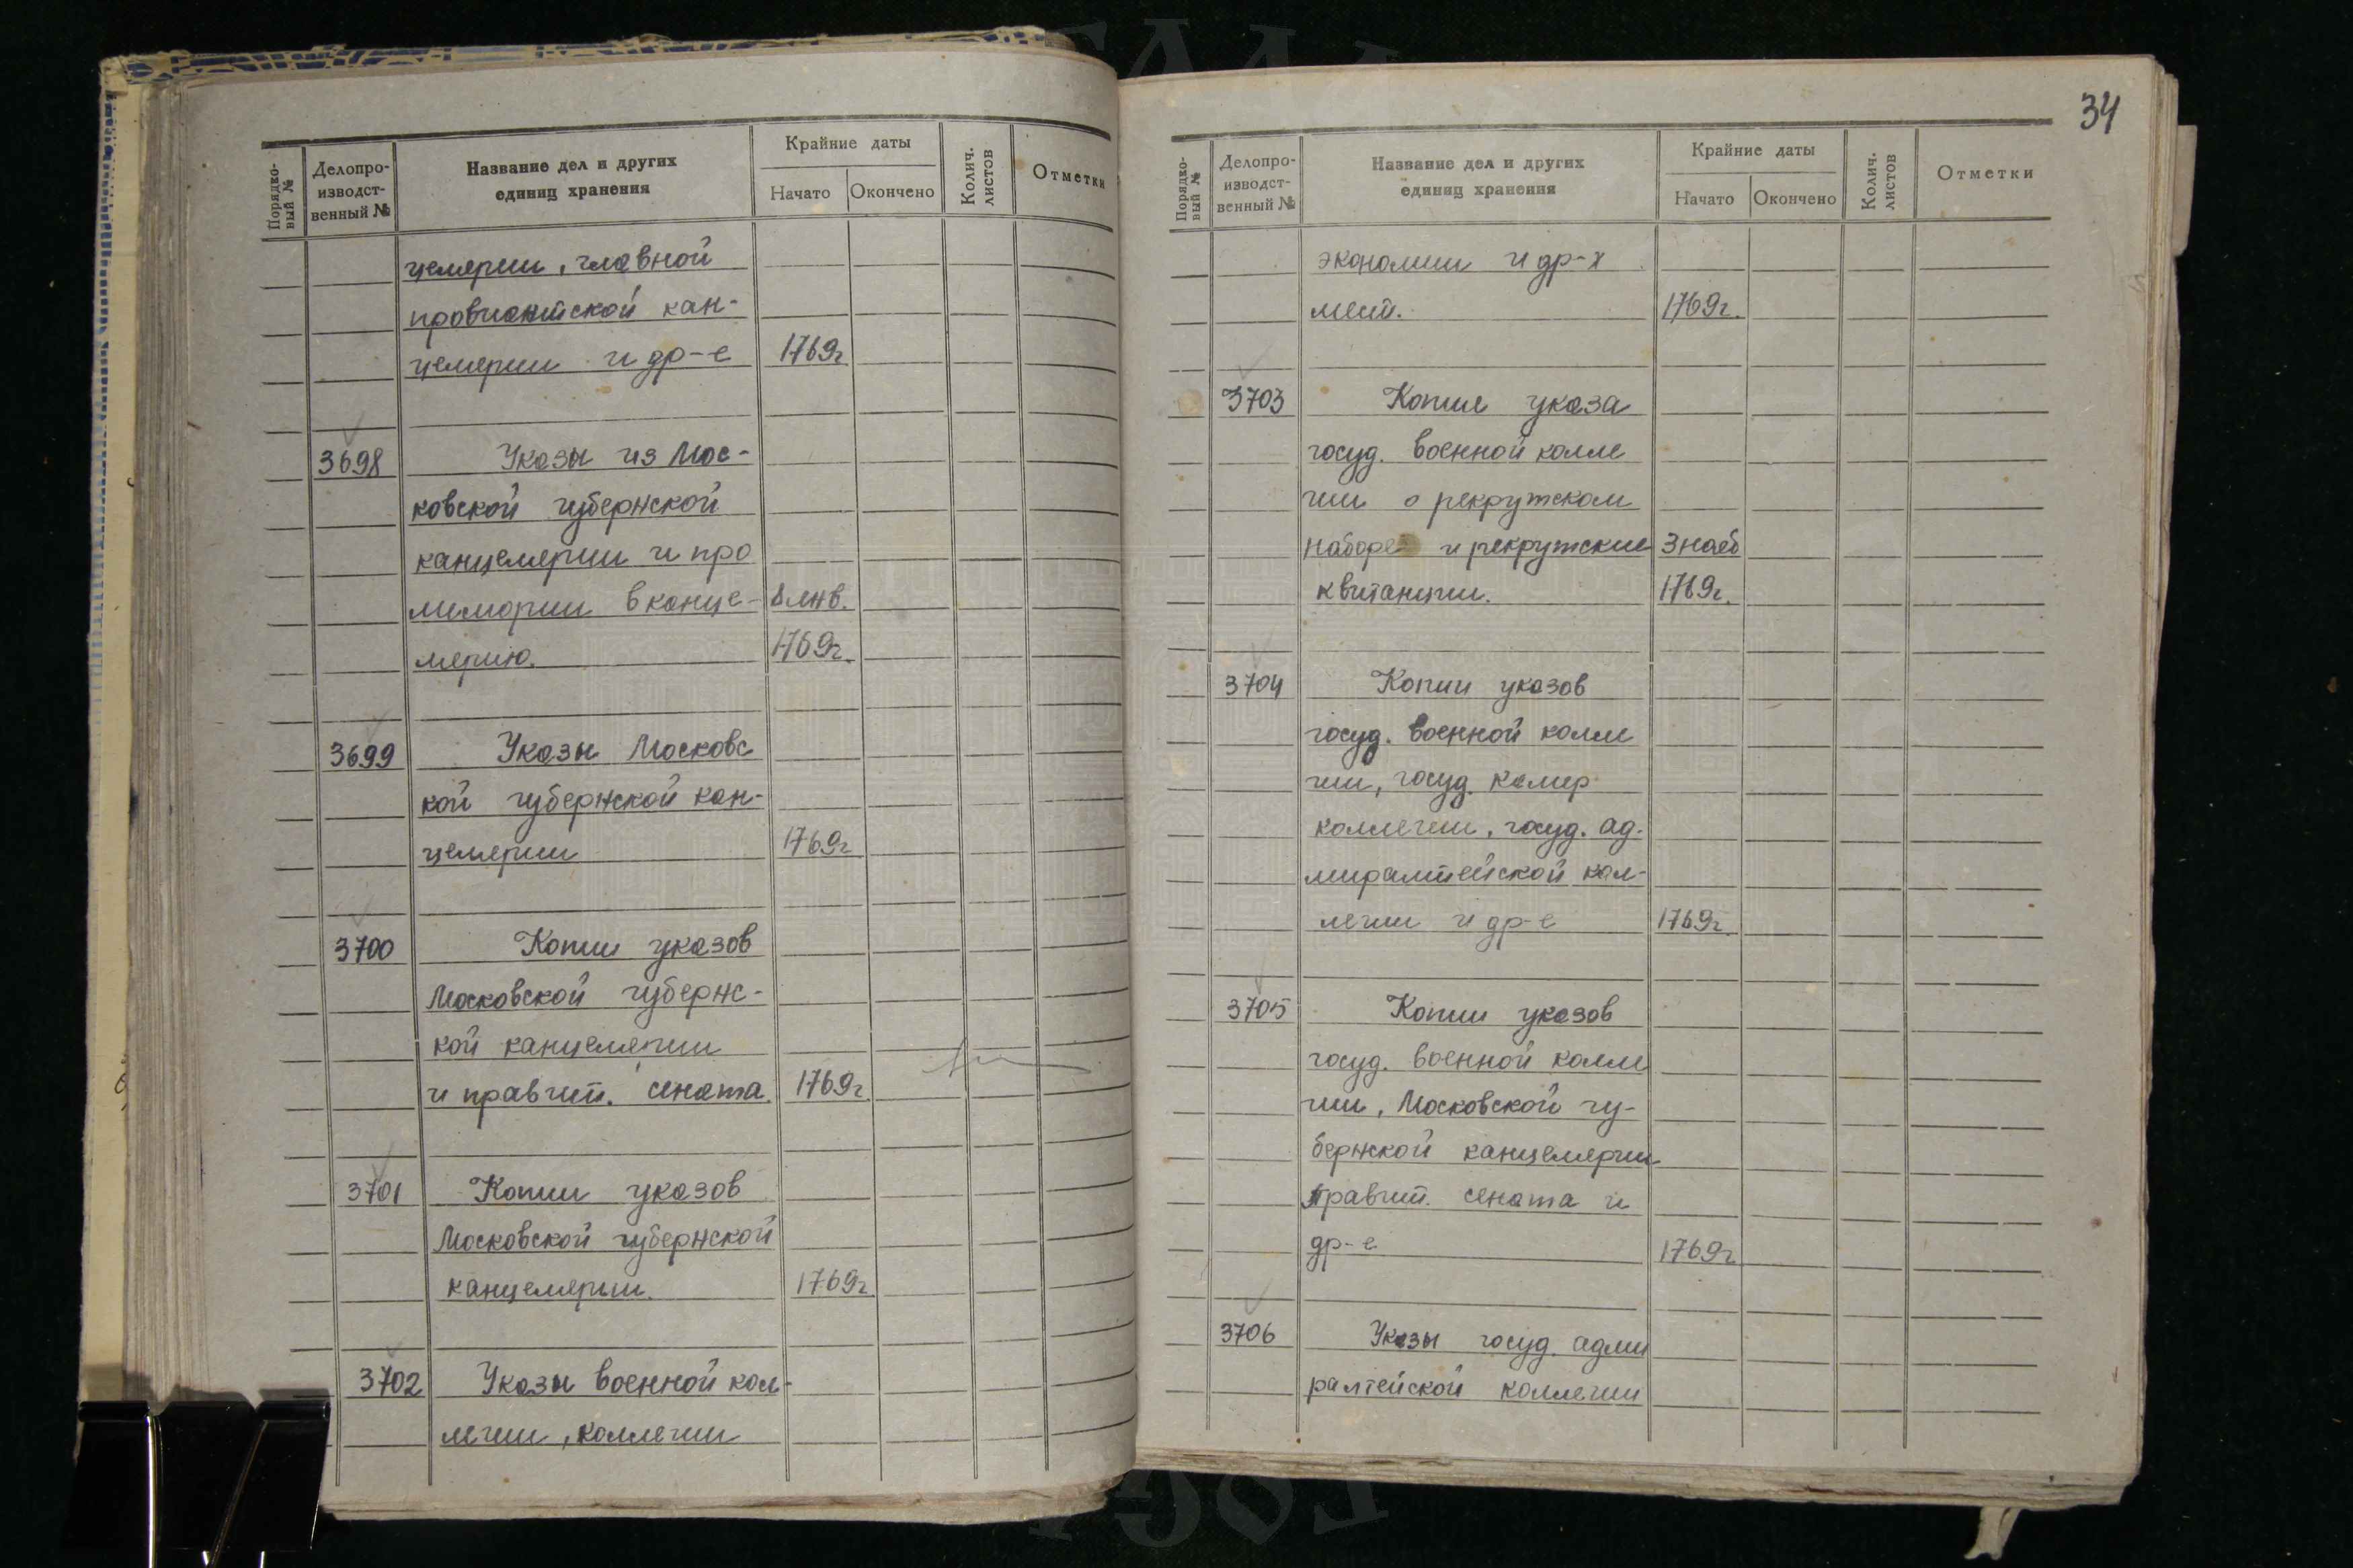 Порядко-
вый №
Делопро-
изводст-
венный №
Название дел и других
единиц хранения
Крайние даты
Начато
Окончено
Колич.
листов
Отметки
целярии, главной
провиантской кан-
целярии и др-е 1769г
3698 Указы из Мос-
ковской губернской
канцелярии и про
мемории в канце- 8 янв.
лярию. 1769г.
3699 Указы Московс
кой губернской кан-
целярии 1769г
3700 Копии указов
Московской губернс-
кой канцелярии
и правит. сената. 1769г.
3701 Копии указов
Московской губернской
канцелярии. 1769г
3702 Указы военной кол-
легии, коллегии
34
Порядко-
вый №
Делопро-
изводст-
венный №
Название дел и других
единиц хранения
Крайние даты
Начато
Окончено
Колич.
листов
Отметки
экономии и др-х
мест. 1769г.
3703 Копия указа
госуд. военной колле
гии о рекрутском
наборе и рекрутские 3 нояб
квитанции. 1769г.
3704 Копии указов
госуд. военной колле
гии, госуд. камер
коллегии, госуд. ад-
миралтейской кол-
легии и др-е 1769г.
3705 Копии указов
госуд. военной колле
гии, Московской гу-
бернской канцелярии
правит. сената и
др-е 1769г
3706 Указы госуд. адми
ралтейской коллегии